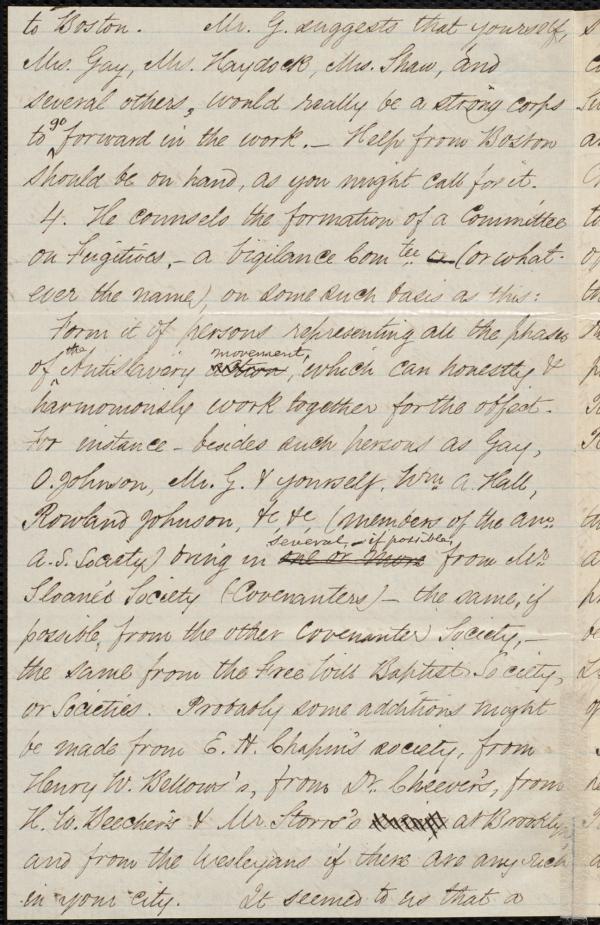 to Boston. Mr. G. suggests that yourself,
Mrs. Gay, Mrs. Haydock, Mrs. Shaw, and
several others, would really be a strong corps
to go forward in the work. — Help from Boston
should be on hand, as you might call for it.
4. He counsels the formation of a Committee
on Fugitives, — a Vigilance Comtee (or what-
ever the name), on some such basis as this:
Form it of persons representing all the phases
of the Antislavery movement, which can honestly &
harmoniously work together for the object.
For instance — besides such persons as Gay,
O. Johnson, Mr. G. & yourself, Wm. A. Hall,
Rowland Johnson, &c, &c, (members of the Am.
A. S. Society) bring in several, — if possible, from Mr.
Sloane's Society (Covenanters) — the same, if
possible, from the other Covenanter Society, —
the same from the Free Will Baptist Society,
or Societies. Probably some additions might
be made from E. H. Chapin's society, from
Henry W. Bellows's, from Dr. Cheever's, from
H. W. Beecher's & Mr Storrs's at Brooklyn
and from the Wesleyans if there are any such
in your city. It seemed to us that a